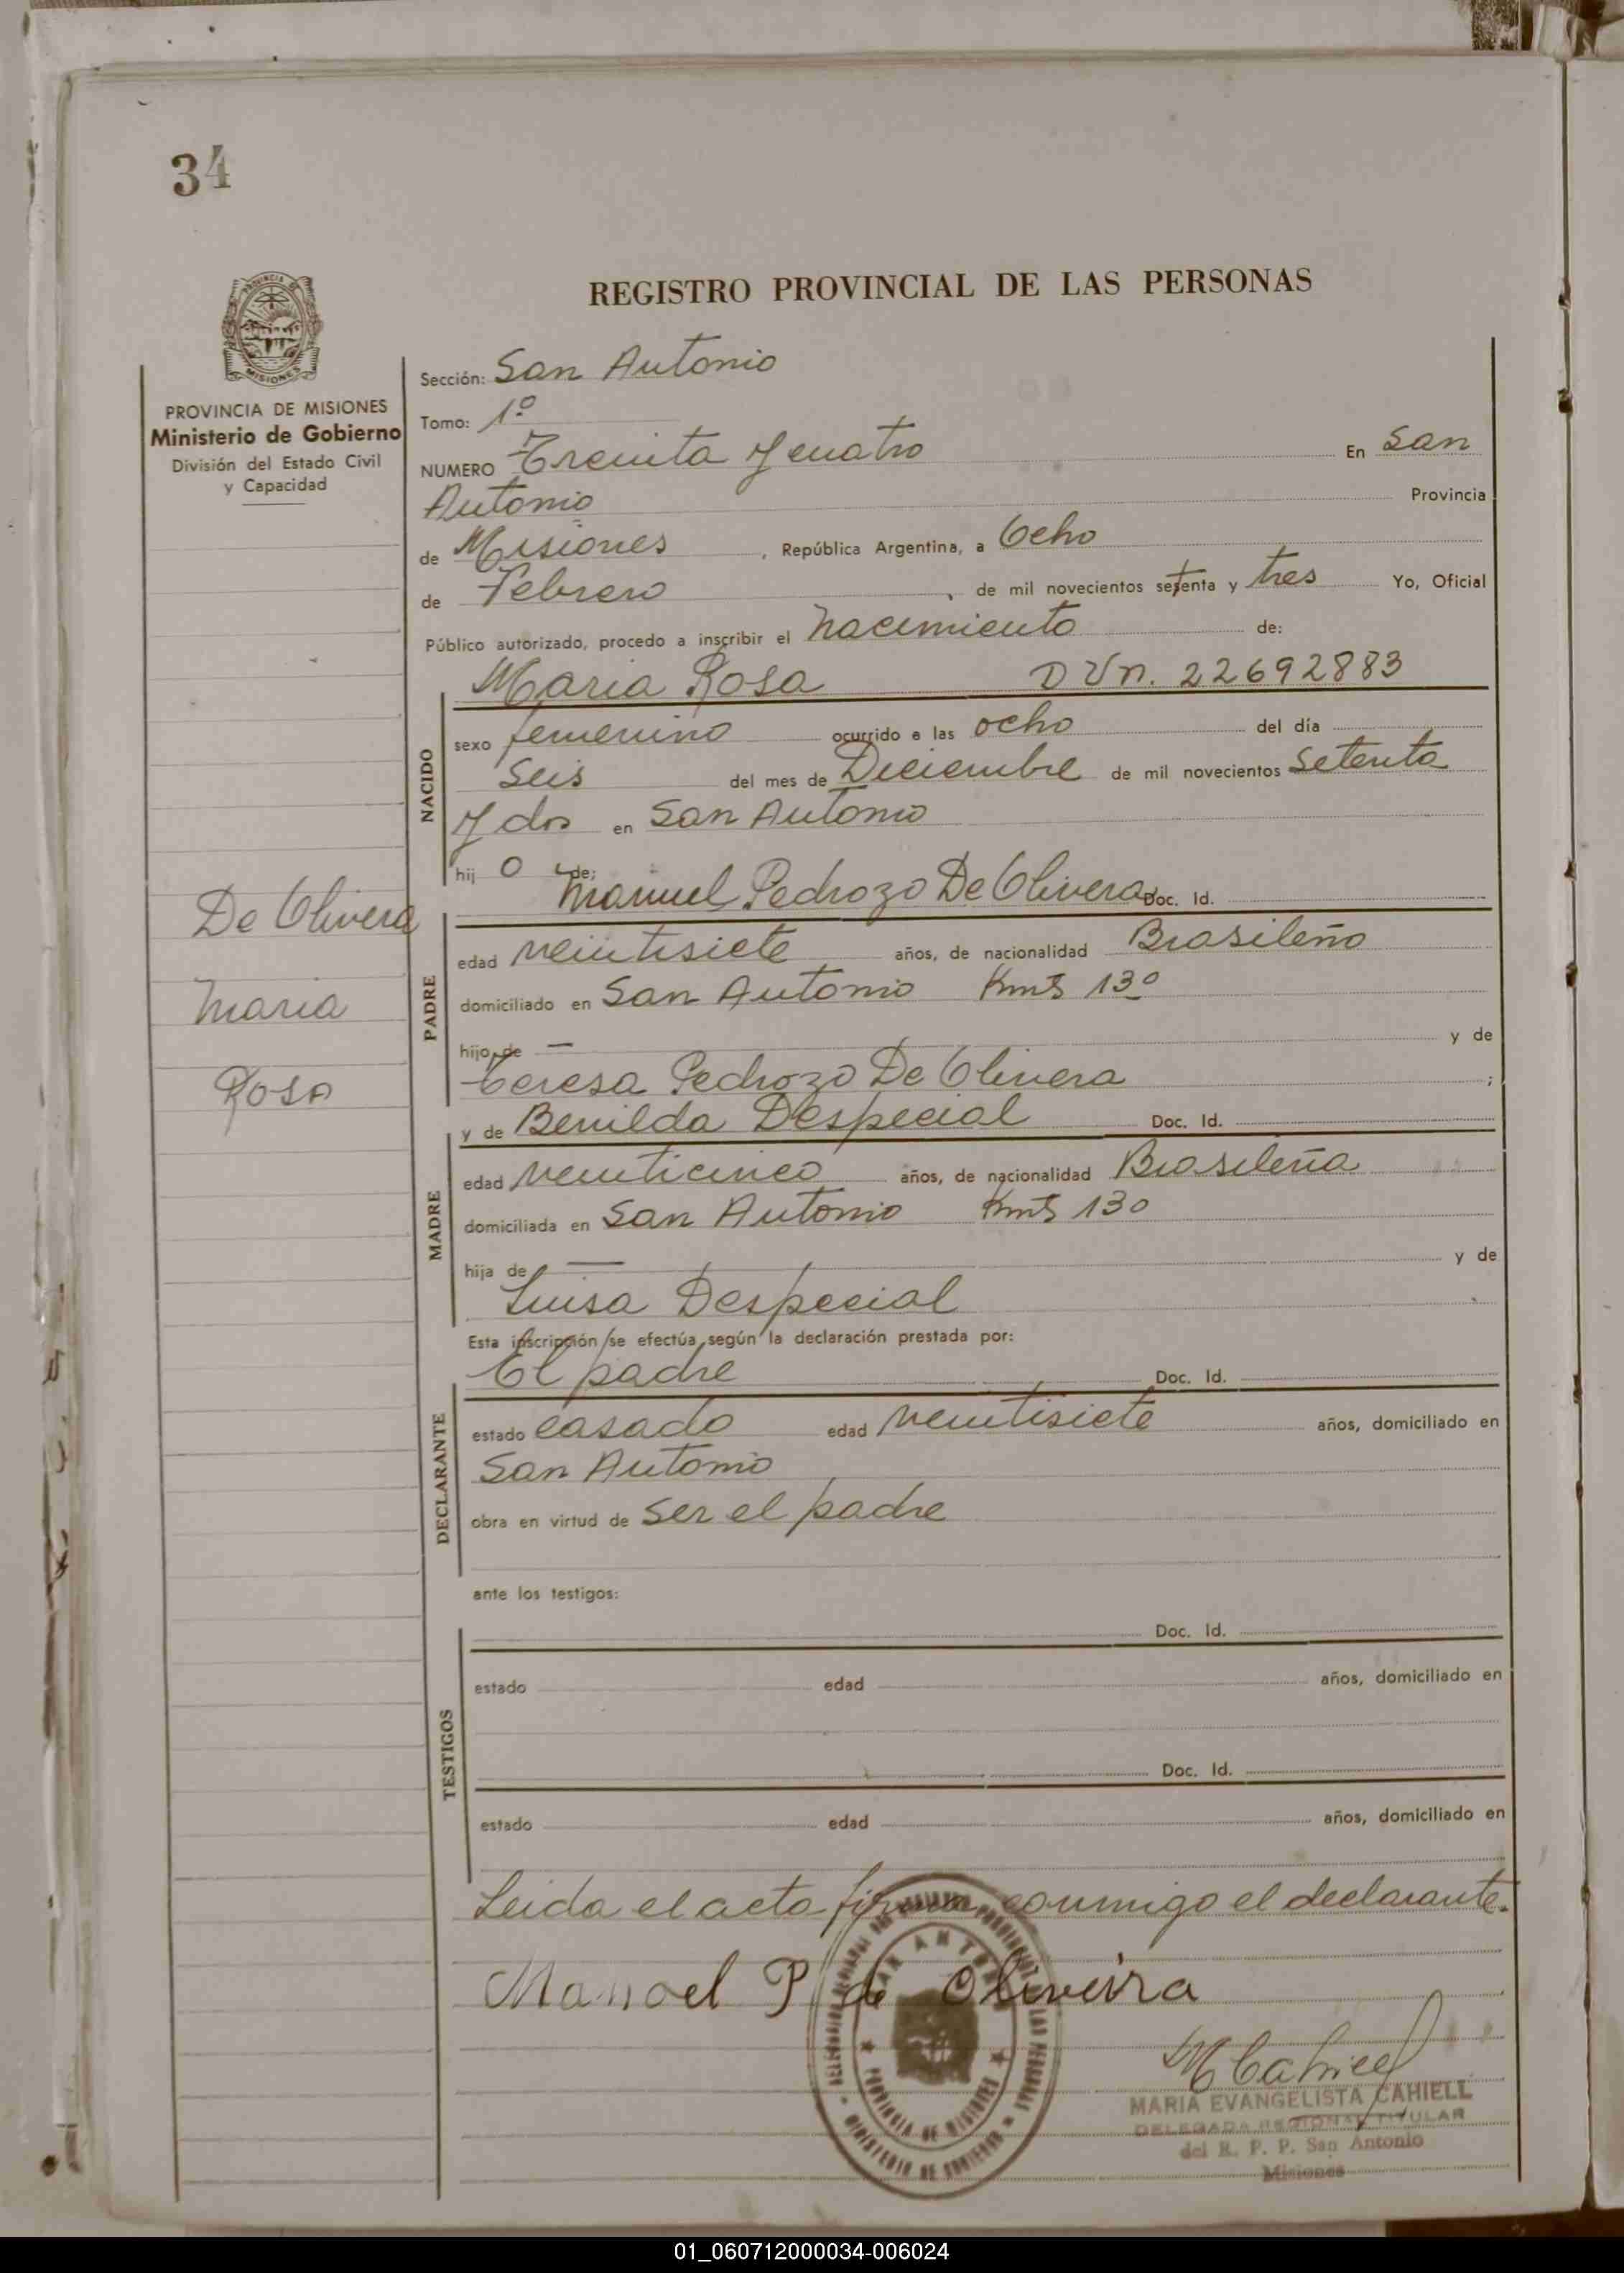 34
REGISTRO PROVINCIAL DE LAS PERSONAS
MISIONES
PROVINCIA DE MISIONES
Ministerio de Gobierno
División del Estado Civil
y Capacidad
De Olivera
Maria
Rosa
Sección: San Antonio
Tomo: 1º
NUMERO Treinta y cuatro En San
Antonio Provincia
de Misiones, República Argentina, a Ocho
de Febrero, de mil novecientos setenta y tres Yo, Oficial
Público autorizado, procedo a inscribir el nacimiento de:
Maria Rosa D U n. 22692883
NACIDO
sexo femenino ocurrido a las ocho del día
Seis del mes de Diciembre de mil novecientos Setenta
y dos en San Antonio
hij o de:
Manuel Pedrozo De Olivera Doc. Id.
PADRE
edad veintisiete años, de nacionalidad Brasileño
domiciliado en San Antonio Kmts 13º
hijo de — y de
Teresa Pedrozo De Olivera ;
y de Benilda Despecial Doc. Id.
MADRE
edad veinticinco años, de nacionalidad Brasileña
domiciliada en San Antonio Kmts 13º
hija de — y de
Luisa Despecial
Esta inscripción se efectúa según la declaración prestada por:
El padre Doc. Id.
DECLARANTE
estado casado edad veintisiete años, domiciliado en
San Antonio
obra en virtud de ser el padre
ante los testigos:
Doc. Id.
TESTIGOS
estado edad años, domiciliado en
Doc. Id.
estado edad años, domiciliado en
Leida el acta firma conmigo el declarante.
Manoel P de Oliveira
M Cahiell
MARIA EVANGELISTA CAHIELL
DELEGADA REGIONAL TITULAR
del R. P. P. San Antonio
Misiones
SAN ANTONIO
PROVINCIA DE MISIONES
MINISTERIO DE GOBIERNO
01_060712000034-006024